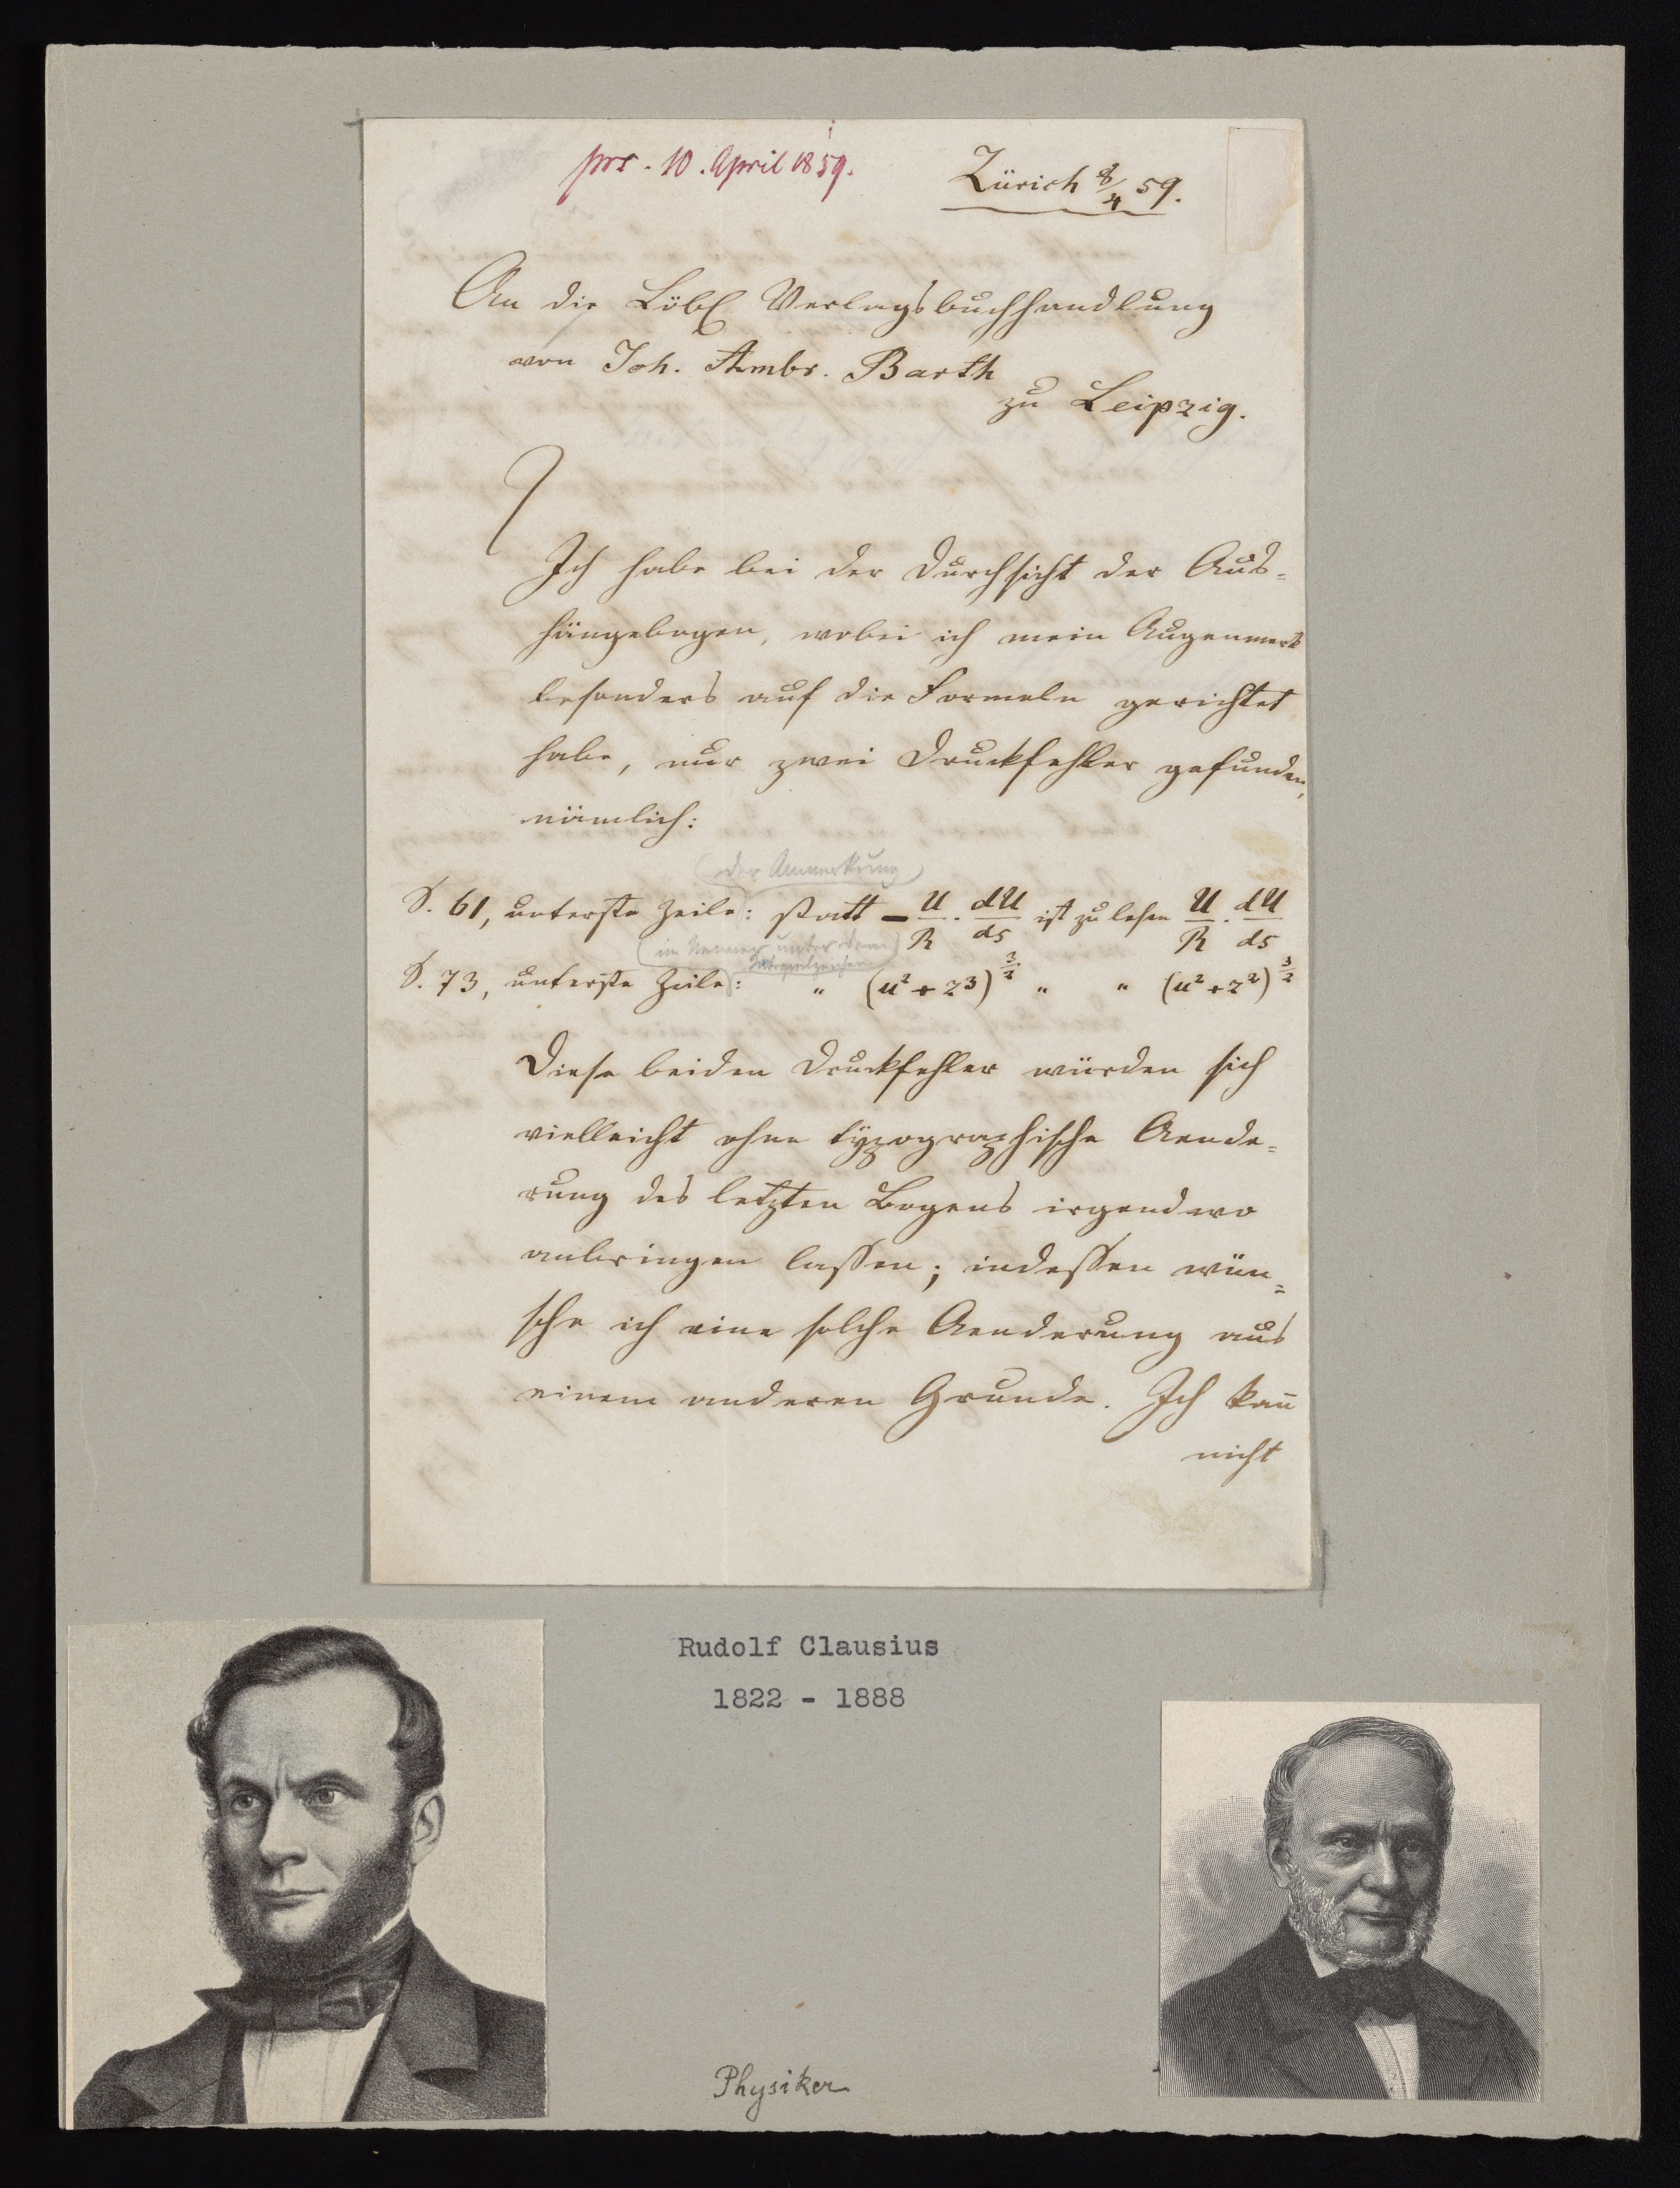 prs. 10. April 1859.
Zürich 8/4 59.
An die Löbl. Verlagsbuchhandlung
von Joh. Ambr. Barth
zu Leipzig.
Ich habe bei der Durchsicht der Aus=
hängebogen, wobei ich mein Augenmerk
besonders auf die Formeln gerichtet
habe, nur zwei Druckfehler gefunden,
nämlich:
(der Anmerkung)
S. 61, unterste Zeile: statt − U/R · dU/ds ist zu lesen U/R · dU/ds
(im Nenner unter dem
Integralzeichen)
S. 73, unterste Zeile: " (u² + z³)^3/2 " " (u² + z²)^3/2
Diese beiden Druckfehler würden sich
vielleicht ohne typographische Aende=
rung des letzten Bogens irgendwo
anbringen lassen; indessen wün=
sche ich eine solche Aenderung aus
einem anderen Grunde. Ich kan̅
nicht
Rudolf Clausius
1822 - 1888
Physiker